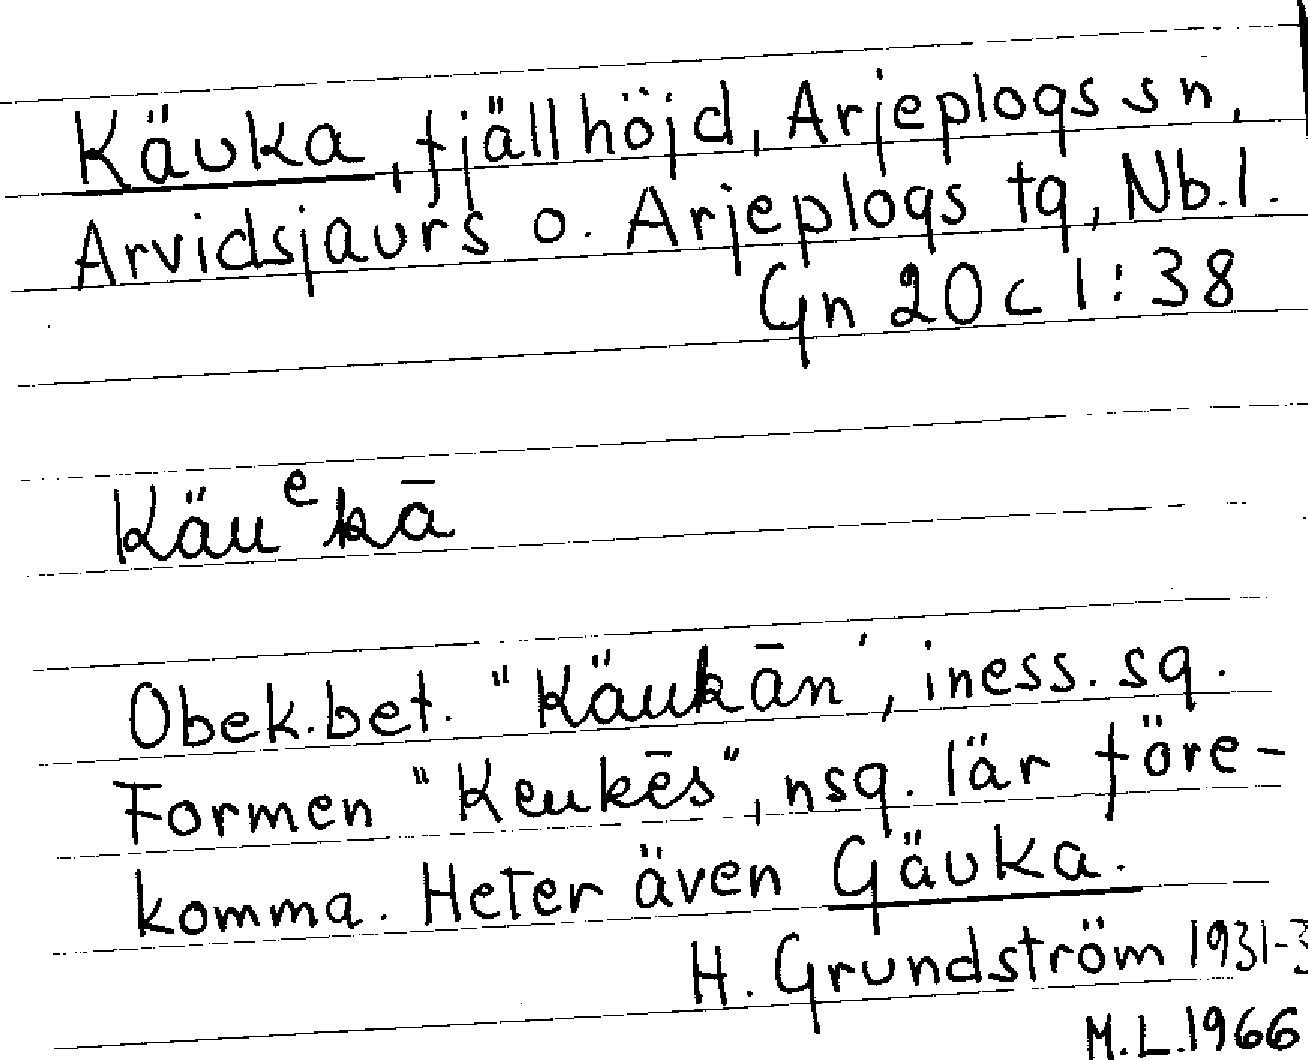 Käuka, fjällhöjd, Arjeplogs sn,
Arvidsjaurs o. Arjeplogs tg, Nb.l.
Gn 20 c 1:38
Käuᵉkā
Obek.bet. "Käukān", iness. sg.
Formen "Keukēs", nsg. lär före-
komma. Heter även Gäuka.
H. Grundström 1931-3
M.L.1966